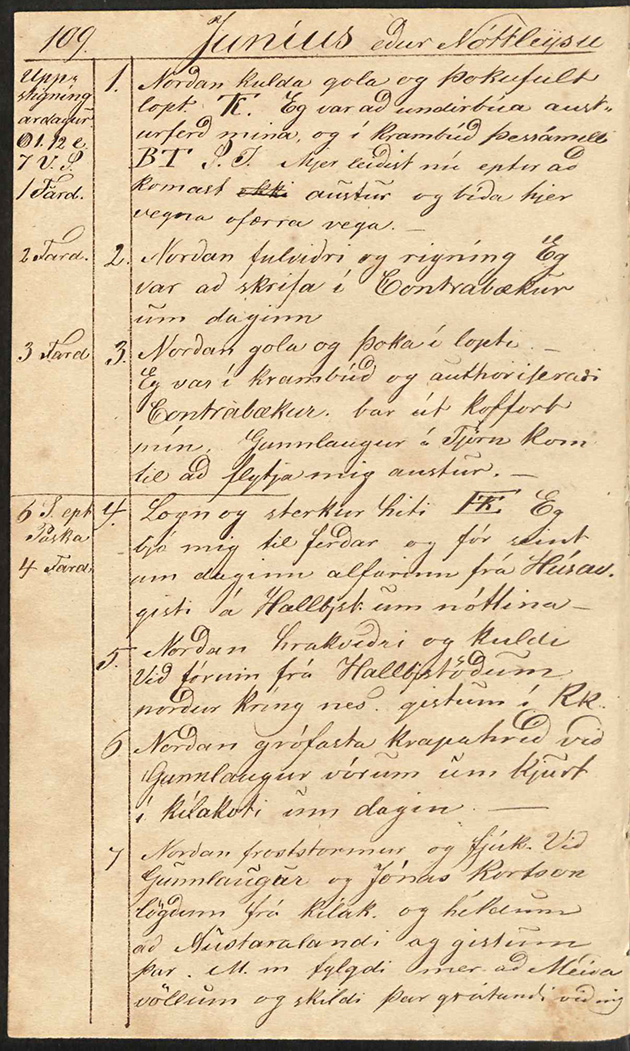 109. Juníus eður Nóttleysu
Upp=
stigning
ardagur
O 1. 12 e.
7 V. S.
1 Fard.
1. Norðan kulda gola og þokufult
lopt TK. Eg var að undirbúa aust=
urferð mína, og í krambúð þessámilli
BT S. T. Mjer leiðist nú eptir að
komast ekki austur og bíða hjer
vegna ofærra vega. —
2 Fard.
2. Norðan fulviðri og rigníng Eg
var að skrifa í Contrabækur
um daginn
3 Fard
3. Norðan gola og þoka í lopti —
Eg var í krambúð og authoriseraði
Contrabækur. bar út koffort
mín. Gunnlaugur á Tjörn kom
til að flytja mig austur. —
6 S. ept
Páska
4 Fard.
4. Logn og sterkur hiti TK Eg
bjó mig til ferðar og fór seint
um daginn alfarinn frá Húsav.
gisti á Hallbjst. um nóttina —
5. Norðan hrakviðri og kuldi
Við fórum frá Hallbjstöðum
norður kríng nes. gistum í Kk.
6 Norðan grófasta krapahríð við
Gunnlaugur vórum um kjurt
í kílakoti um dagin. —
7 Norðan froststormur og fjúk. Við
Gunnlaugur og Jónas
lögðum frá kílak. og héldum
að Austaralandi og gistum
þar. M. m fylgdi mér að Meiða
völlum og skildi þar grátandi við mig